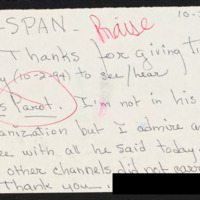 -SPAN- Praise 10-
Thanks for giving ti
y (10-2-94) to see/hear
s Parot. I'm not in his
anization but I admire a
ee with all he said today
other channels did not carr
Thank you.